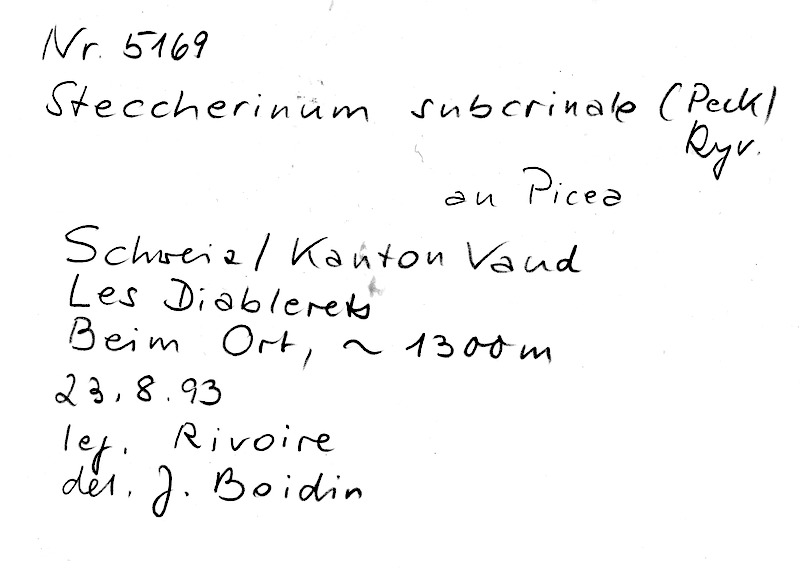 Nr. 5169
Steccherinum subcrinale (Peck)
Ryv.
an Picea
Schweiz/Kanton Vaud
Les Diablerets
Beim Ort, ~ 1300m
23.8.93
leg. Rivoire
det. J. Boidin